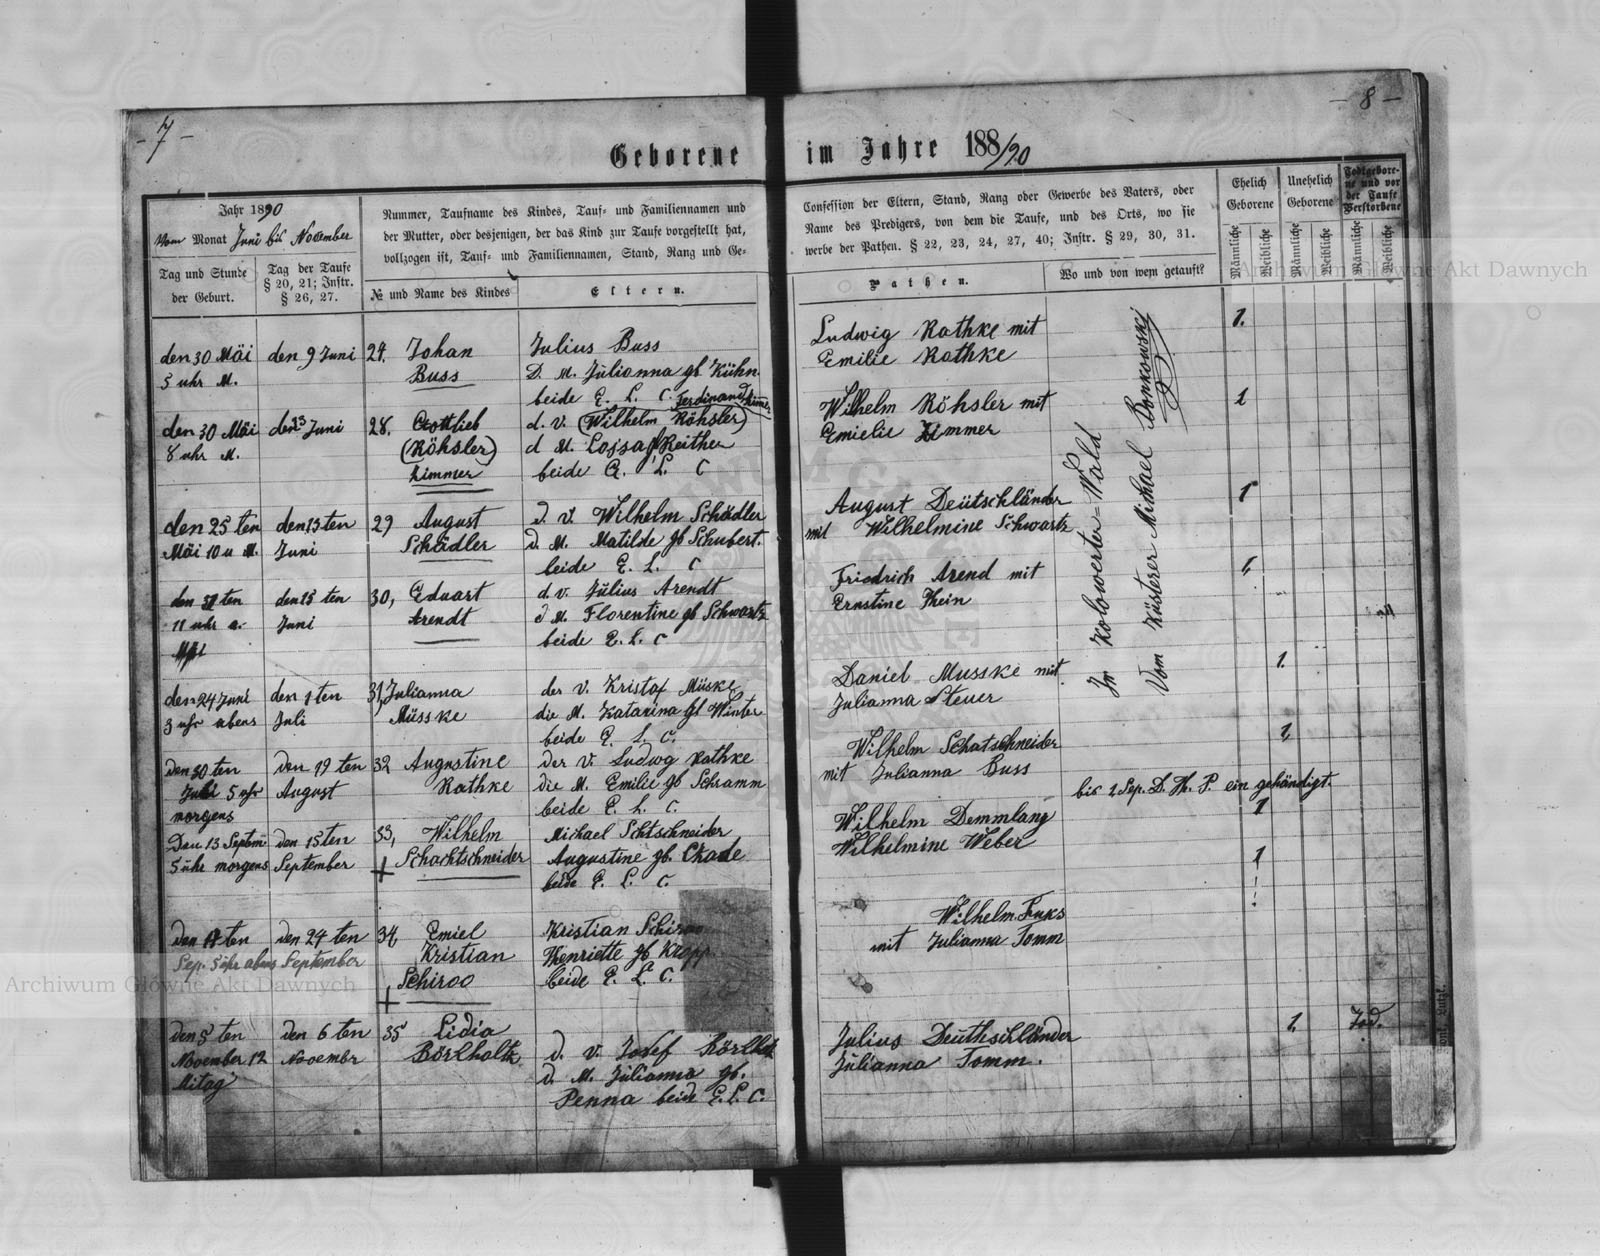 - 7 -
- 8 -
Geborene im Jahre 188/90
Jahr 1890
Vom Monat Juni bis November
Tag und Stunde
der Geburt.
Tag der Taufe
§ 20, 21; Instr.
§ 26, 27.
Nummer, Taufname des Kindes, Tauf- und Familiennamen und
der Mutter, oder desjenigen, der das Kind zur Taufe vorgestellt hat,
vollzogen ist, Tauf- und Familiennamen, Stand, Rang und Ge-
№ und Name des Kindes
Eltern.
Confession der Eltern, Stand, Rang oder Gewerbe des Vaters, oder
Name des Predigers, von dem die Taufe, und des Orts, wo sie
werbe der Pathen. § 22, 23, 24, 27, 40; Instr. § 29, 30, 31.
Pathen.
Wo und von wem getauft?
Ehelich
Geborene
Unehelich
Geborene
Todtgebore-
ne und vor
der Taufe
Verstorbene
Männliche
Weibliche
Männliche
Weibliche
Männliche
Weibliche
den 30 Mäi
5 uhr M.
den 9 Juni
24. Johan
Buss
Julius Buss
D. M. Julianna gb Kühn
beide E. L. C.
Ludwig Rathke mit
Emilie Rathke
1.
den 30 Mäi
8 uhr M.
den 23 Juni
28. Gottlieb
(Röhsler)
Zimmer
Ferdinand Zimmer
d. V. (Wilhelm Röhsler)
d M. Reither
beide E. L. C
Wilhelm Röhsler mit
Emielie Zimmer
1
den 25 ten
Mäi 10 u M.
den 15 ten
Juni
29 August
Schädler
d. V. Wilhelm Schädler
d. M. Matilde gb Schubert.
beide E. L. C
August Deütschländer
mit Wilhelmine Schwartz
1
den 31 ten
11 uhr a.
Mäi
den 15 ten
Juni
30, Eduart
Arendt
d. v. Julius Arendt
d M. Florentine gb Schwartz
beide E. L. C
Friedrich Arend mit
Ernstine Thein
1,
den 24 Juni
3 uhr abens
den 1 ten
Juli
31, Julianna
Müsske
der V. Kristof Müske
die M. Katarina gb Winter
beide E. L. C.
Daniel Musske mit
Julianna Steuer
1.
den 30 ten
Juli 5 uhr
morgens
den 19 ten
August
32 Augustine
Rathke
der V. Ludwig Rathke
die M. Emilie gb Schramm
beide E. L. C.
Wilhelm Schatschneider
mit Julianna Buss
1,
bis 2 Sep. D. H. P. ein gehändigt.
Den 13 Septem
5 uhr morgens
den 15 ten
September
33, Wilhelm
+ Schachtschneider
Michael Schtschneider
Augustine gb.
beide E. L. C.
Wilhelm Demmlang
Wilhelmine Weber
1
1
den 17 ten
Sep. 5 uhr abens
den 24 ten
September
34, Emiel
Kristian
+ Schiroo
Kristian Schiroo
Henriette gb Kropp
beide E. L. C.
Wilhelm Fuks
mit Julianna Tomm
den 5 ten
November 12
Mitag
den 6 ten
Novembr
35 Lidia
Börlholtz
d. V. Josef
d. M. Julianna gb.
Penna beide E. L. C.
Julius Deuthschländer
Julianna Tomm.
1,
Tod.
Im Kolowerter=Wald
Vom Küsterer Michael Bonkowski
Archiwum Główne Akt Dawnych
Archiwum Główne Akt Dawnych